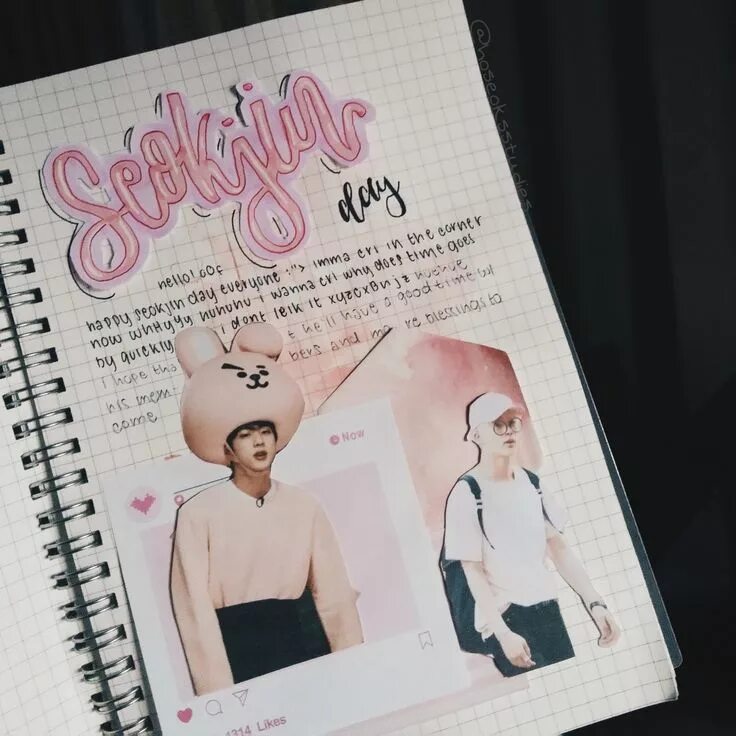 Seokjin
day
hello! oof
happy seokjin day everyone :"> imma cri in the corner
now whHyyy huhuhu i wanna cri why does time goes
by quickly i dont leik it xyzcxbnjz
I hope tha t he'll have a good time w/
his mem bers and mo re blessings to
come
Now
4314 Likes
@hoseoksstudies